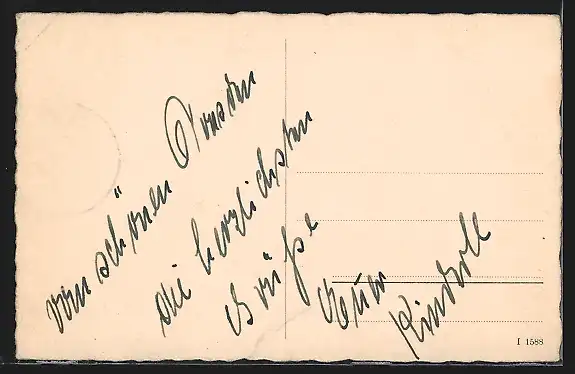 vom schönen Dresden
die herzlichsten
Grüße
Eure
I 1588